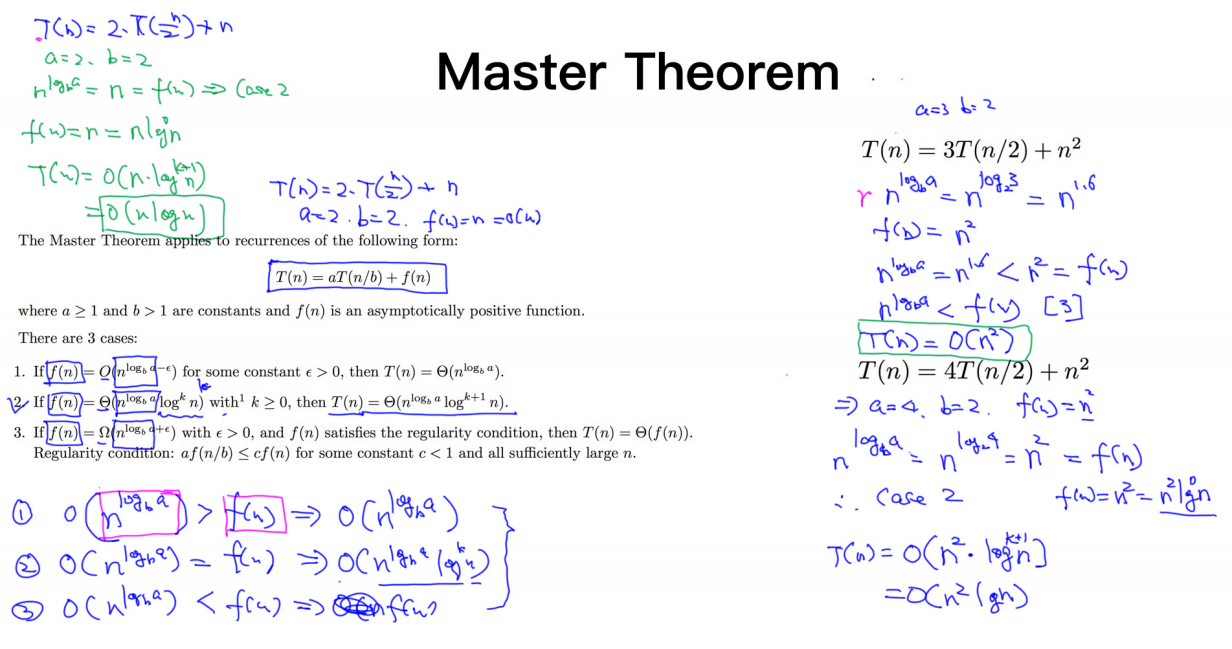 T(n) = 2·T(n/2) + n
a=2、b=2
n^{log_b a} = n = f(n) ⇒ Case 2
f(n) = n = n lg^0 n
T(n) = O(n·log^{k+1} n)
= O(n log n)
Master Theorem
T(n) = 2·T(n/2) + n
a=2. b=2. f(n) = n = O(n)
The Master Theorem applies to recurrences of the following form:
T(n) = aT(n/b) + f(n)
where a ≥ 1 and b > 1 are constants and f(n) is an asymptotically positive function.
There are 3 cases:
1. If f(n) = O(n^{log_b a−ϵ}) for some constant ϵ > 0, then T(n) = Θ(n^{log_b a}).
k
2. If f(n) = Θ(n^{log_b a} log^k n) with¹ k ≥ 0, then T(n) = Θ(n^{log_b a} log^{k+1} n).
3. If f(n) = Ω(n^{log_b a+ϵ}) with ϵ > 0, and f(n) satisfies the regularity condition, then T(n) = Θ(f(n)).
Regularity condition: af(n/b) ≤ cf(n) for some constant c < 1 and all sufficiently large n.
① O(n^{log_b a}) > f(n) ⇒ O(n^{log_b a})
② O(n^{log_b a}) = f(n) ⇒ O(n^{log_b a} log^k n)
③ O(n^{log_b a}) < f(n) ⇒ f(n)
a=3 b=2
T(n) = 3T(n/2) + n²
r n^{log_b a} = n^{log_2 3} = n^{1.6}
f(n) = n²
n^{log_b a} = n^{1.6} < n² = f(n)
n^{log_b a} < f(n) [3]
T(n) = O(n²)
T(n) = 4T(n/2) + n²
⇒ a=4. b=2. f(n) = n²
n^{log_b a} = n^{log_2 4} = n² = f(n)
∴ Case 2 f(n) = n² = n² lg^0 n
T(n) = O(n²·log^{k+1} n]
= O(n² lgn)